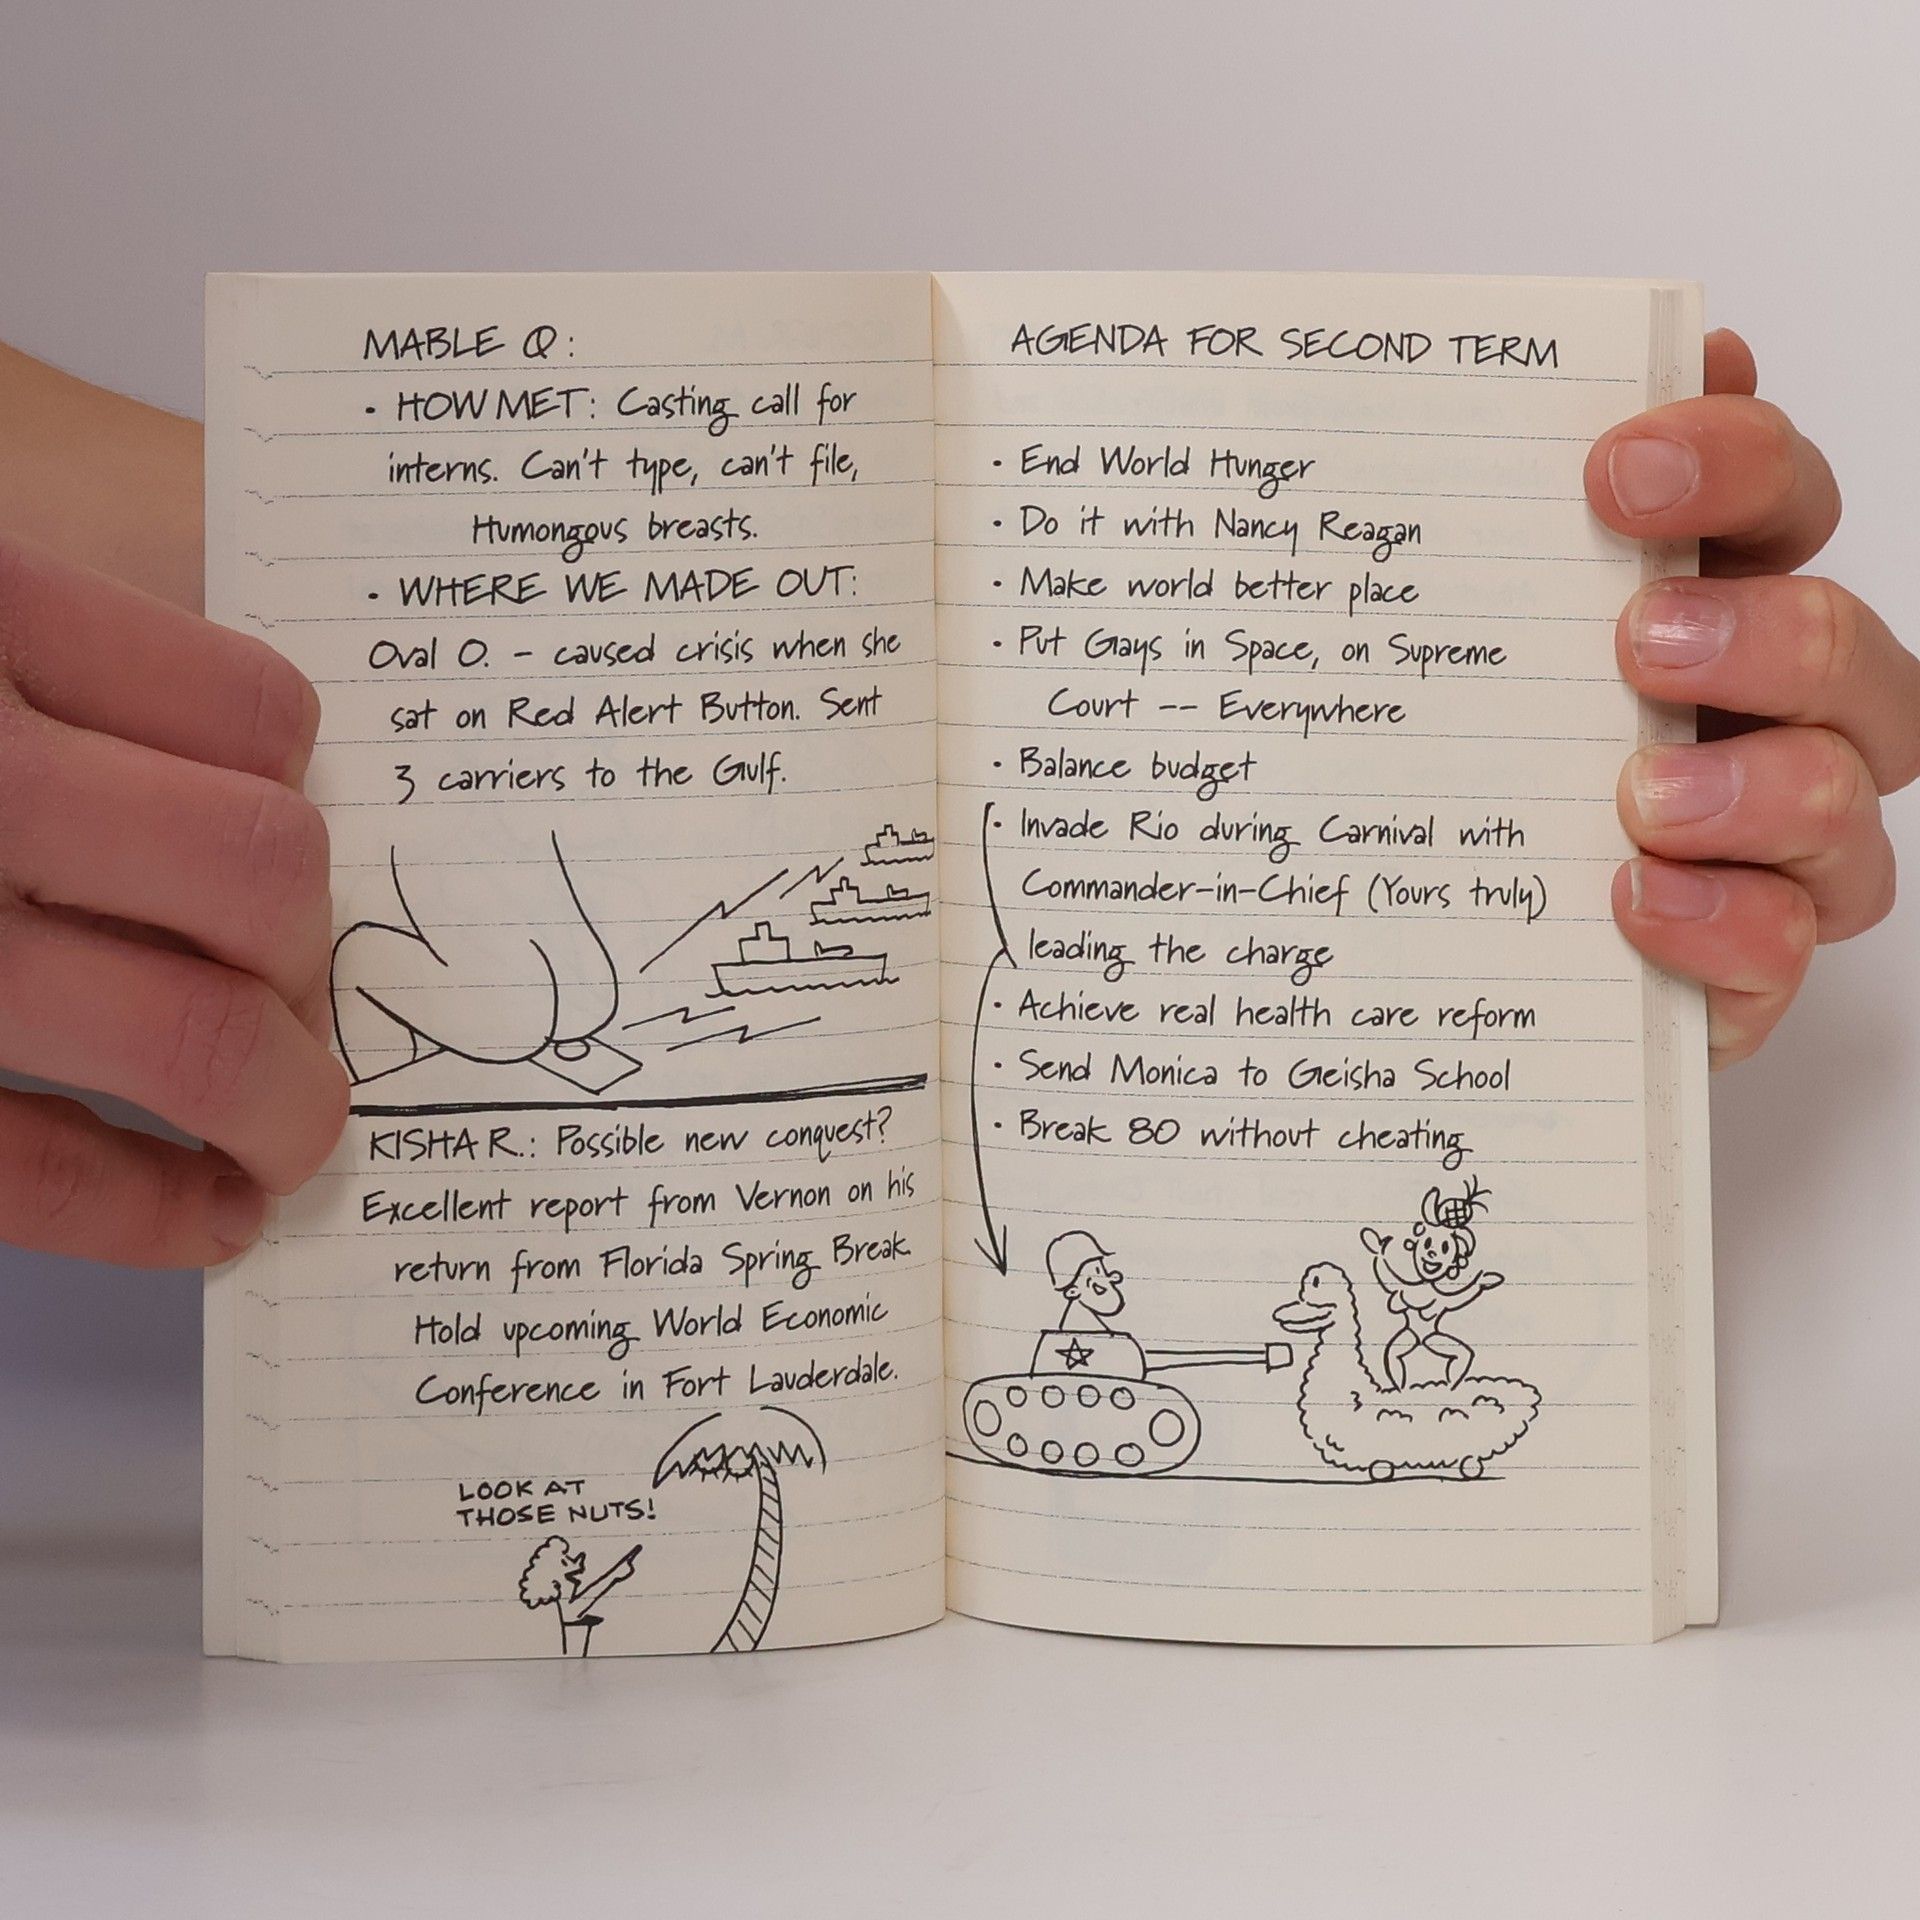 MABLE Q:
• HOW MET: Casting call for
interns. Can't type, can't file,
Humongous breasts.
• WHERE WE MADE OUT:
Oval O. - caused crisis when she
sat on Red Alert Button. Sent
3 carriers to the Gulf.
KISHA R.: Possible new conquest?
Excellent report from Vernon on his
return from Florida Spring Break.
Hold upcoming World Economic
Conference in Fort Lauderdale.
LOOK AT
THOSE NUTS!
AGENDA FOR SECOND TERM
• End World Hunger
• Do it with Nancy Reagan
• Make world better place
• Put Gays in Space, on Supreme
Court -- Everywhere
• Balance budget
• Invade Rio during Carnival with
Commander-in-Chief (Yours truly)
leading the charge
• Achieve real health care reform
• Send Monica to Geisha School
• Break 80 without cheating